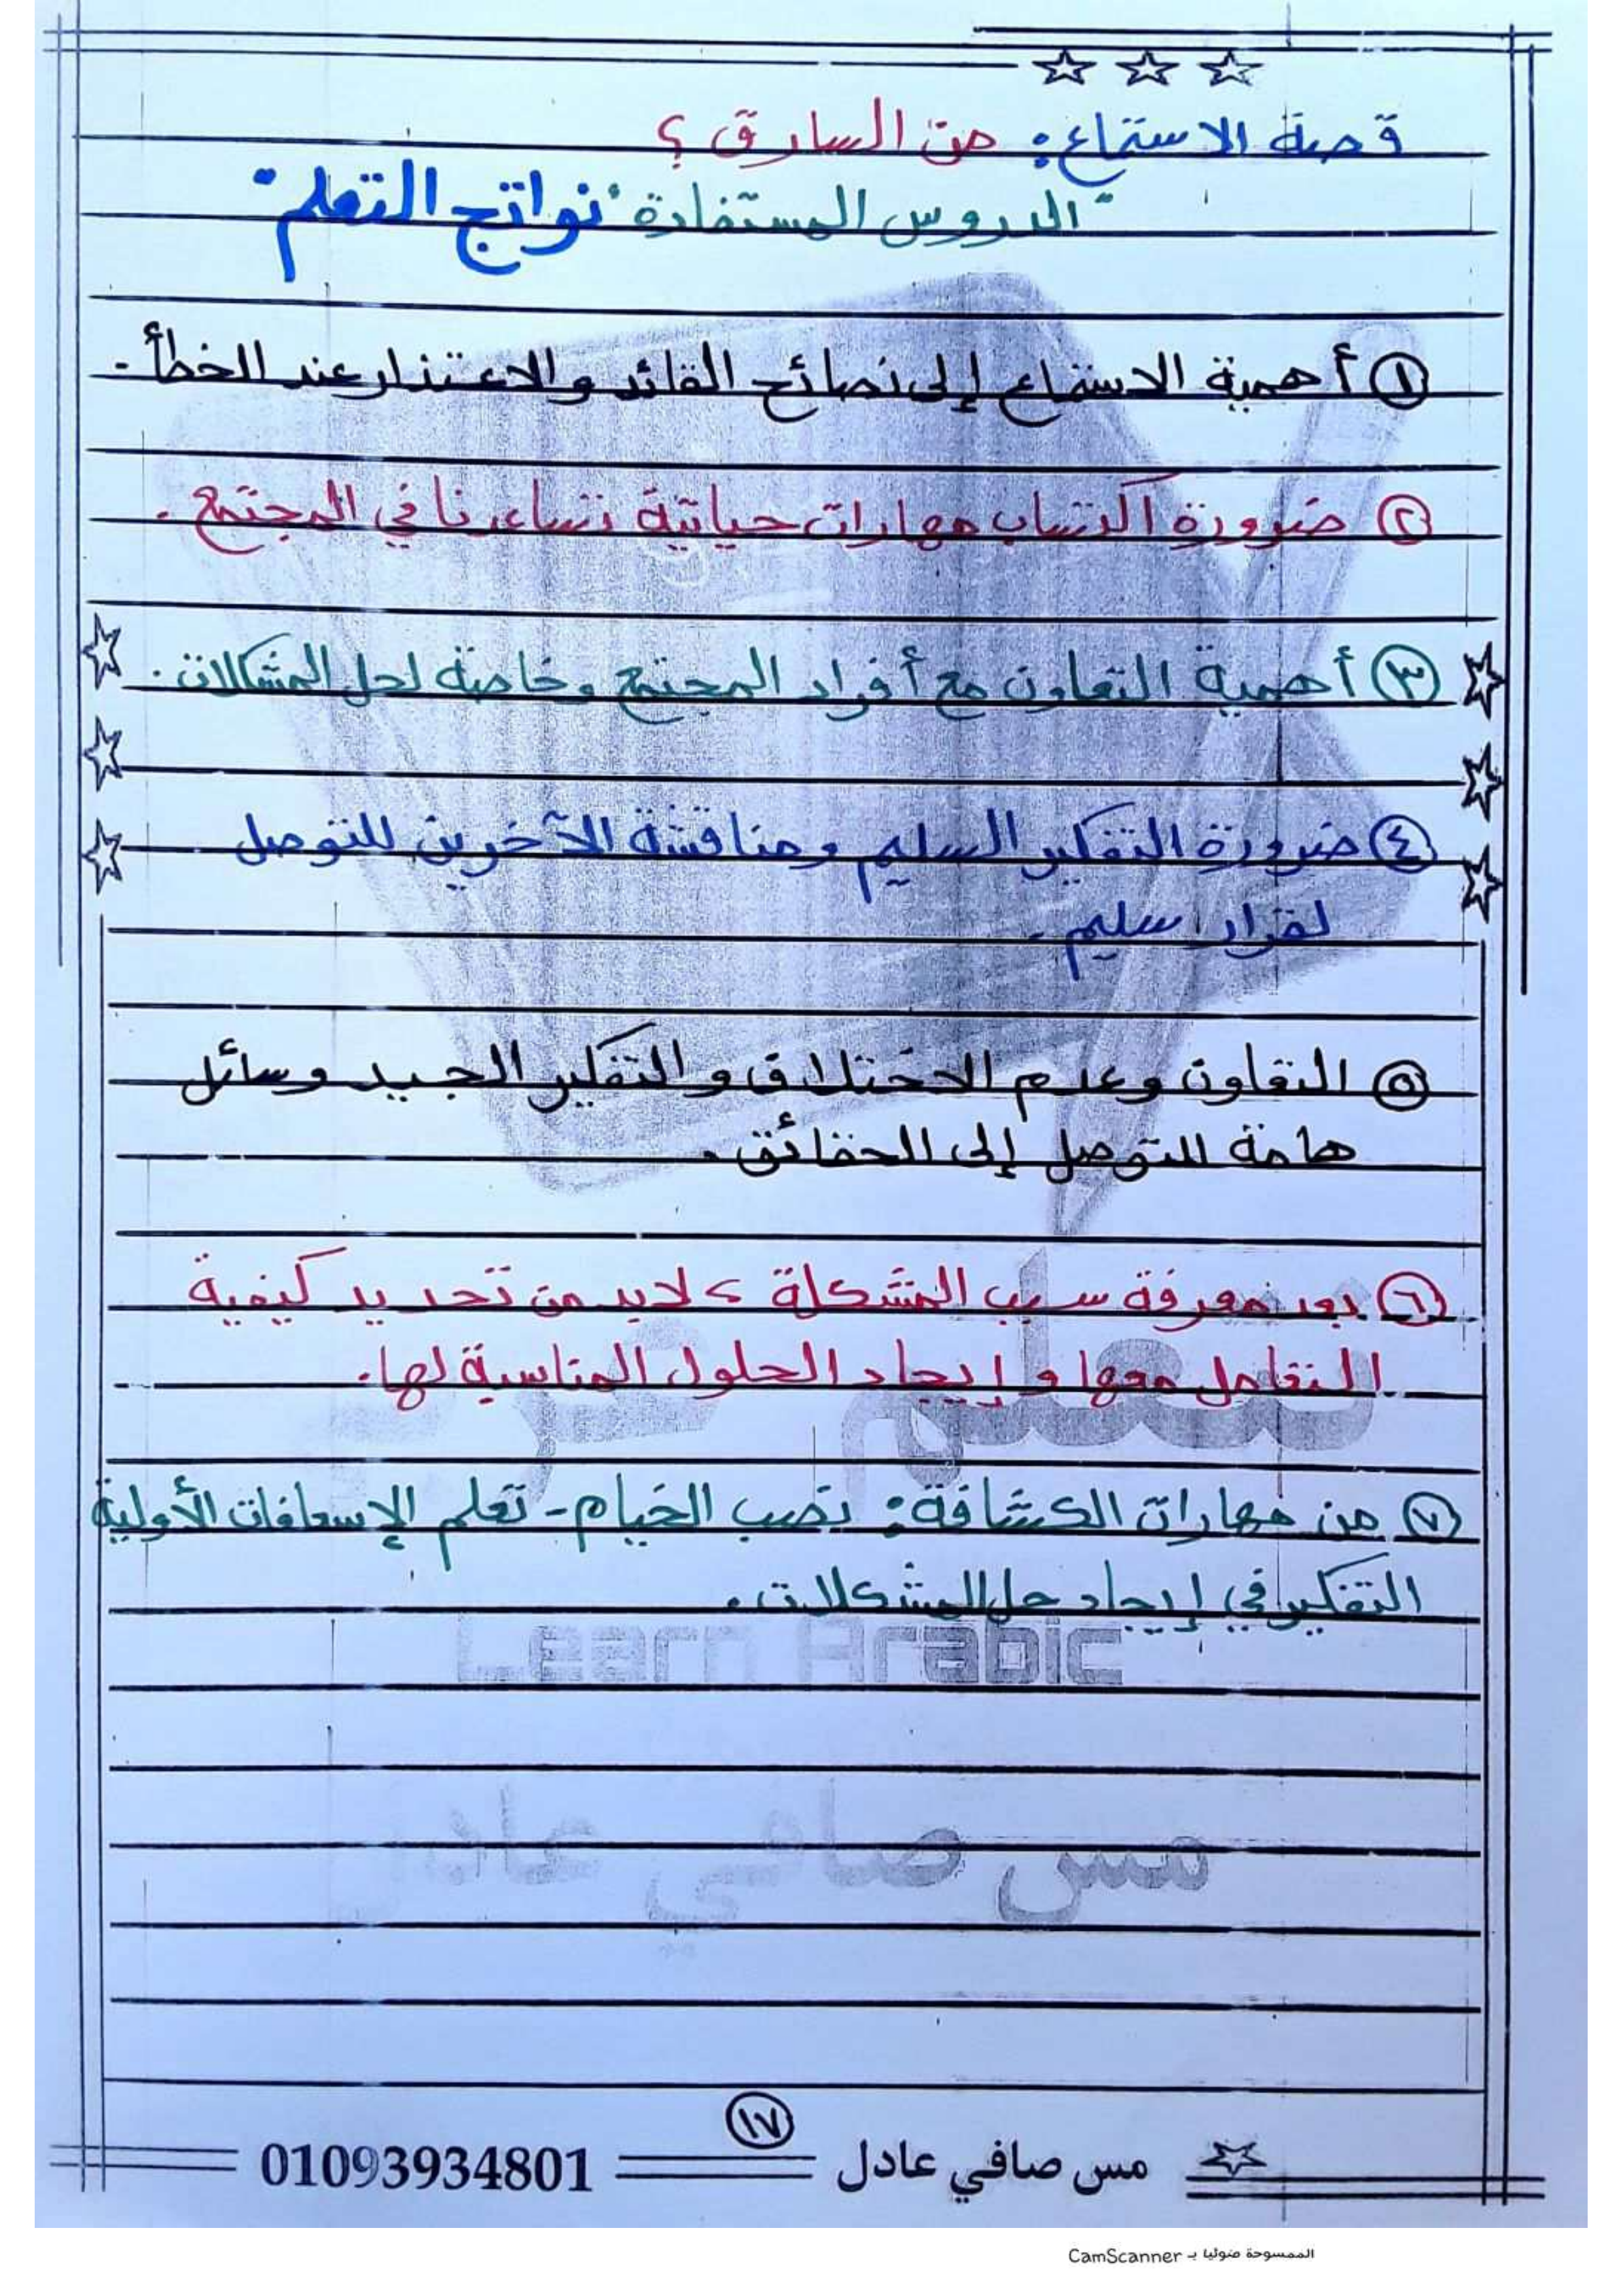 قصة الاستماع: من السارق؟
"الدروس المستفادة "نواتج التعلم"
① أهمية الاستماع إلى نصائح القائد والاعتذار عند الخطأ.
② ضرورة اكتساب مهارات حياتية تساعدنا في المجتمع.
③ أهمية التعاون مع أفراد المجتمع وخاصة لحل المشكلات.
④ ضرورة التفكير السليم ومناقشة الآخرين للتوصل
لقرار سليم.
⑤ التعاون وعدم الاختلاف والتفكير الجيد وسائل
هامة للتوصل إلى الحقائق.
⑥ بعد معرفة سبب المشكلة، لابد من تحديد كيفية
التعامل معها وإيجاد الحلول المناسبة لها.
⑦ من مهارات الكشافة: نصب الخيام - تعلم الإسعافات الأولية
التفكير في إيجاد حل المشكلات.
Learn Arabic
مس صافي عادل
١٧
مس صافي عادل 01093934801
الممسوحة ضوئيا بـ CamScanner